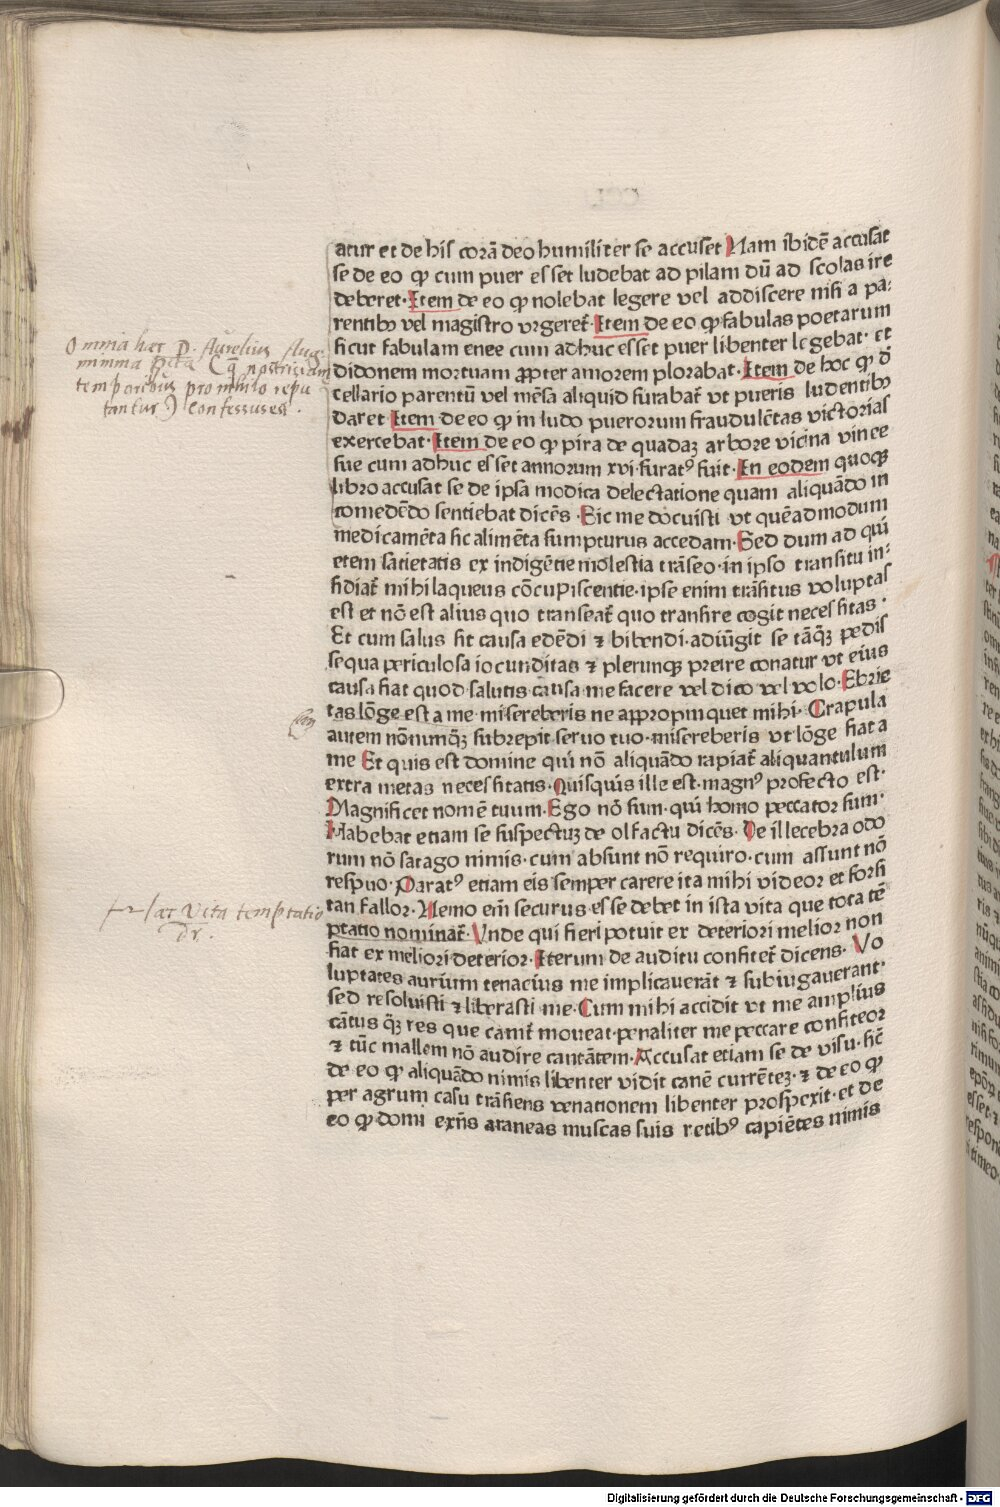 atur et de his corā deo humiliter se accuset Nam ibidē accusat
se de eo ꝙ cum puer esset ludebat ad pilam dū ad scolas ire
deberet· Item de eo ꝙ nolebat legere vel addiscere nisi a pa-
rentibꝰ vel magistro vrgeret̄· Item de eo ꝙ fabulas poetarum
sicut fabulam enee cum adhuc esset puer libenter legebat· et
didonem mortuam ꝓpter amorem plorabat· Item de hoc ꝙ d̄
cellario parentū vel mēsa aliquid furabat̄ vt pueris ludentibꝰ
daret Item de eo ꝙ in ludo puerorum fraudulētas victorias
exercebat· Item de eo ꝙ pira de quadaꝫ arbore vicina vinee
sue cum adhuc esset annorum xvi· furatꝰ fuit· In eodem quoqꝫ
libro accusat se de ipsa modica delectatione quam aliquādo in
comedēdo sentiebat dicēs· Sic me docuisti vt quēadmodum
medicamēta sic alimēta sumpturus accedam· Sed dum ad qui
etem satietatis ex indigētie molestia trāseo· in ipso transitu in-
sidiat̄ mihi laqueus cōcupiscentie· ipse enim trāsitus voluptas
est et nō est alius quo transeat̄ quo transire cogit necessitas·
Et cum salus sit causa edēdi ⁊ bibendi· adiūgit se tāq̄ꝫ pedis
sequa periculosa iocunditas ⁊ plerunqꝫ preire conatur vt eius
causa fiat quod salutis causa me facere vel dico vel volo· Ebrie
tas lōge est a me· misereberis ne appropinquet mihi· Crapula
autem nōnunq̄ꝫ subrepit seruo tuo· misereberis vt lōge fiat a
me Et quis est domine qui nō aliquādo rapiat̄ aliquantulum
extra metas necessitatis· Quisquis ille est· magnꝰ profecto est·
Magnificet nomē tuum· Ego nō sum· qui homo peccator sum·
Habebat etiam se suspectuꝫ de olfactu dicēs· De illecebra odo
rum nō satago nimis· cum absunt nō requiro· cum assunt nō
respuo· Paratꝰ etiam eis semper carere ita mihi videor et forsi
tan fallor· Nemo em̄ securus esse debet in ista vita que tota tē
ptatio nominat̄· Vnde qui fieri potuit ex deteriori melior non
fiat ex meliori deterior· Iterum de auditu confitet̄ dicens· Vo
luptates aurium tenacius me implicauerāt ⁊ subiugauerant·
sed resoluisti ⁊ liberasti me· Cum mihi accidit vt me amplius
cātus q̄ꝫ res que canit̄ moueat· penaliter me peccare confiteor
⁊ tūc mallem nō audire cantātem· Accusat etiam se de visu· hc̄
de eo ꝙ aliquādo nimis libenter vidit canē currēteꝫ· ⁊ de eo ꝙ
per agrum casu trāsiens venationem libenter prospexit· et de
eo ꝙ domi exn̄s araneas muscas suis retibꝰ capiētes nimis
Omnia hæc
temporibus pro nihilo repu
tantur) confessus est.
hæc vita temptatio
dr.
Digitalisierung gefördert durch die Deutsche Forschungsgemeinschaft - DFG